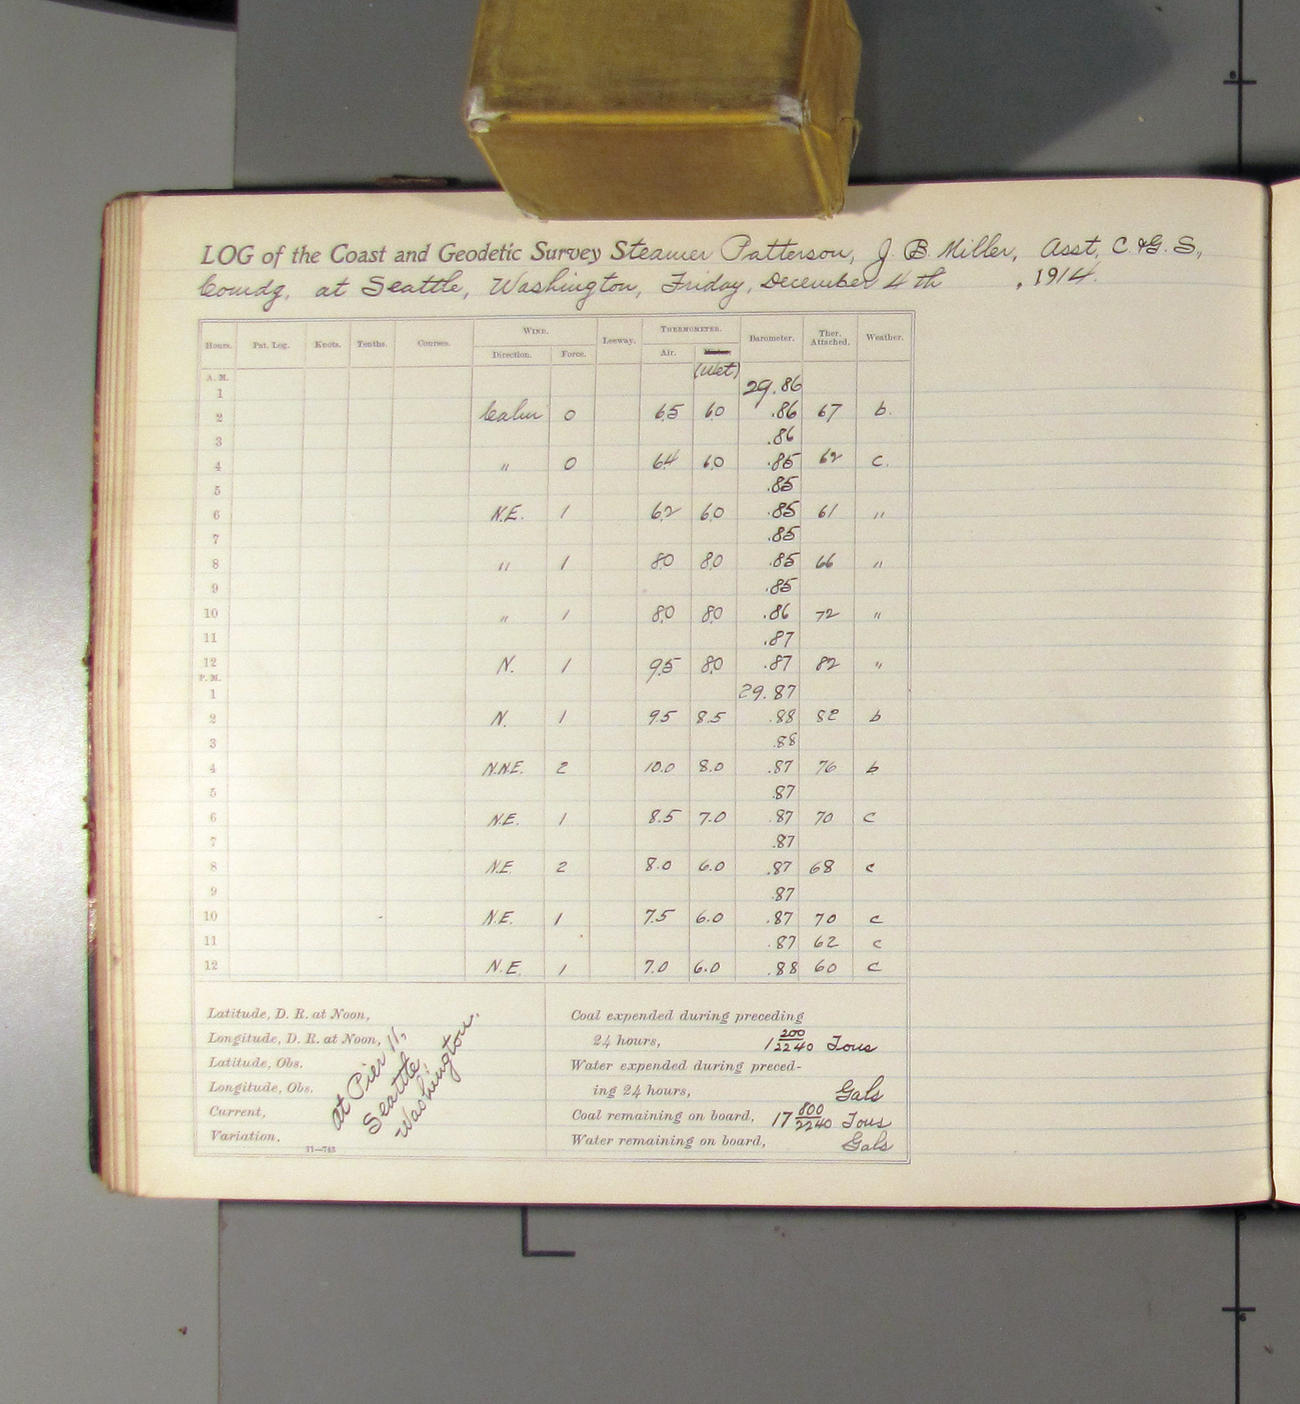 LOG of the Coast and Geodetic Survey Steamer Patterson, J. B. Miller, Asst, C.&G. S.,
Comdg, at Seattle, Washington, Friday, December 4th, 1914.
Hours. Pat. Log. Knots. Tenths. Courses. WIND. Leeway. THERMOMETER. Barometer. Ther. Attached. Weather.
Direction. Force. Air. (Wet)
A. M.
1 29.86
2 Calm 0 6.5 6.0 .86 67 b.
3 .86
4 " 0 6.4 6.0 .85 62 c.
5 .85
6 N.E. 1 6.2 6.0 .85 61 "
7 .85
8 " 1 8.0 8.0 .85 66 "
9 .85
10 " 1 8.0 8.0 .86 72 "
11 .87
12 N. 1 9.5 8.0 .87 82 "
P. M.
1 29.87
2 N. 1 9.5 8.5 .88 82 b
3 .88
4 N.N.E. 2 10.0 8.0 .87 76 b
5 .87
6 N.E. 1 8.5 7.0 .87 70 c
7 .87
8 N.E. 2 8.0 6.0 .87 68 c
9 .87
10 N.E. 1 7.5 6.0 .87 70 c
11 .87 62 c
12 N.E. 1 7.0 6.0 .88 60 c
Latitude, D. R. at Noon,
Longitude, D. R. at Noon,
Latitude, Obs.
Longitude, Obs.
Current,
Variation.
at Pier 11,
Seattle,
Washington.
11—743
Coal expended during preceding
24 hours, 1 200/2240 Tons
Water expended during preced-
ing 24 hours, Gals
Coal remaining on board, 17 800/2240 Tons
Water remaining on board, Gals
6
6